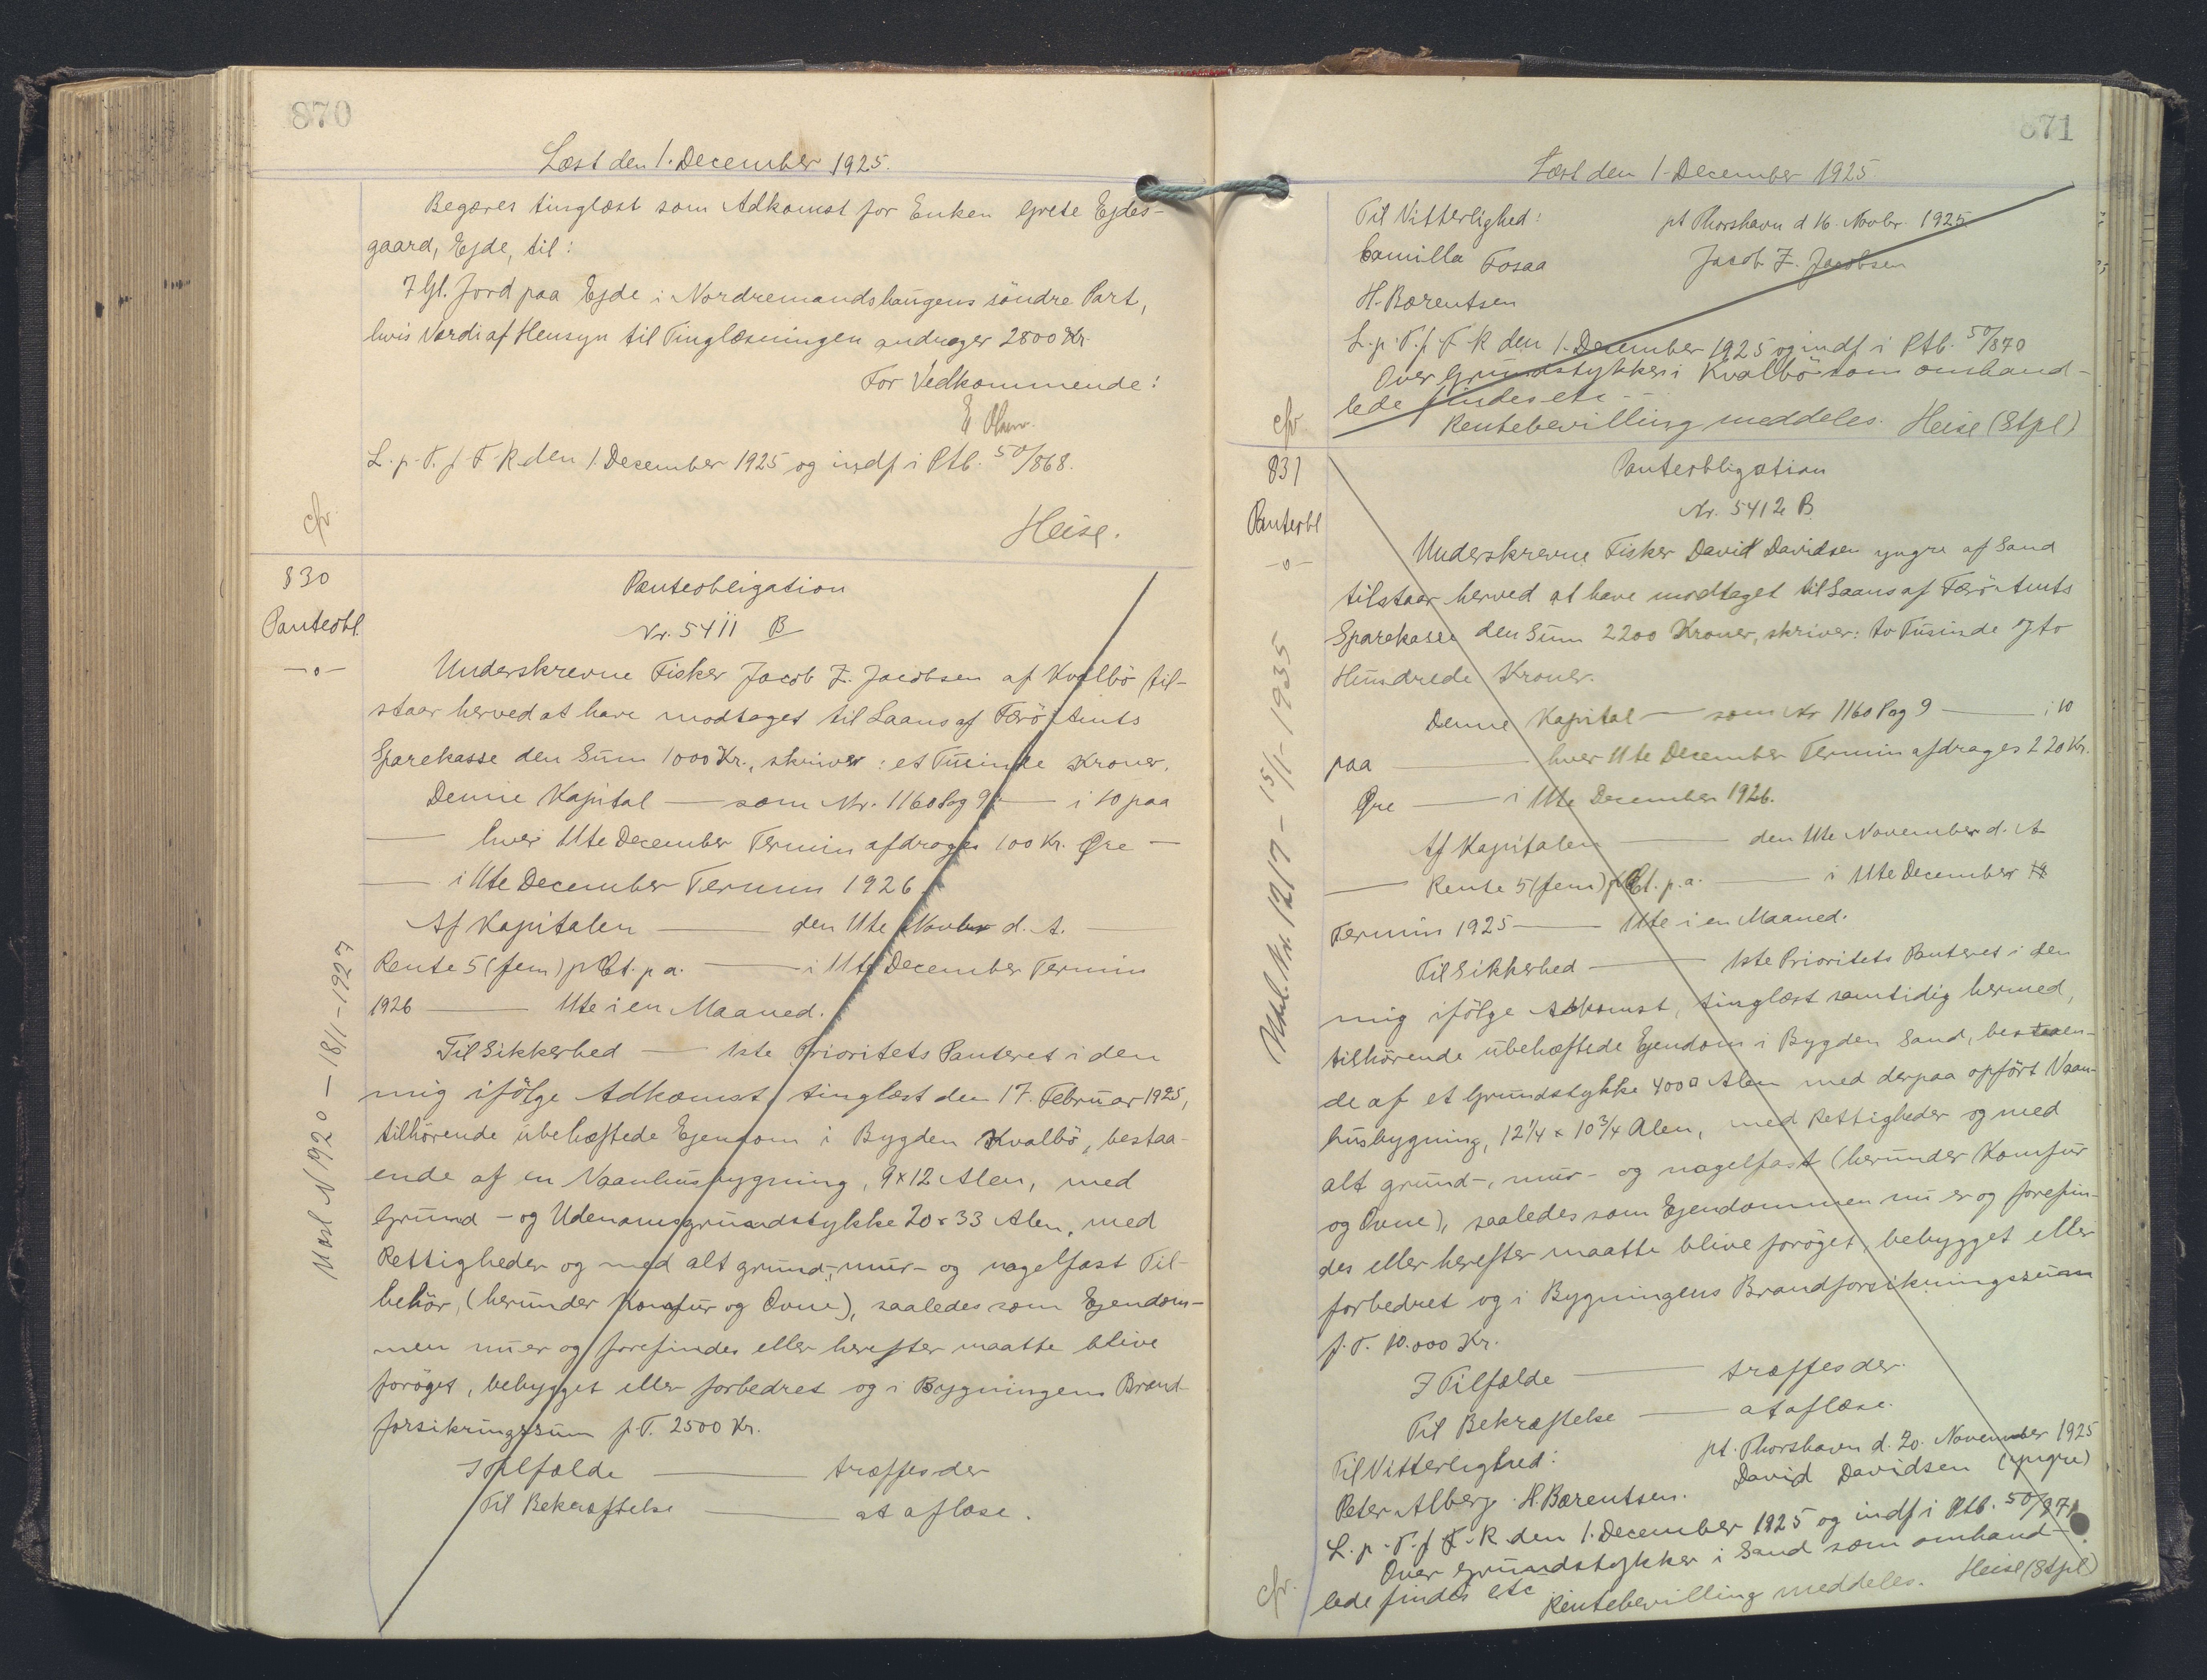 870
Læst den 1. December 1925.
Begæres tinglæst som Adkomst for Enken Grete Ejdes-
gaard, Ejde, til:
7 Gl. Jord paa Ejde i Nordremandshaugens söndre Part,
hvis Værdi af Hensyn til Tinglæsningen andrager 2800 Kr.
For Vedkommende:
E Olsen.
L. p. T. f. F. R. den 1. December 1925 og indf i Ptb. 50/868.
cfr.
Heise.
830
Panteobl.
—o—
Panteobligation
Nr. 5411 B
Underskrevne Fisker Jacob Z. Jacobsen af Kvalbö til-
staar herved at have modtaget til Laans af Færö Amts
Sparekasse den Sum 1000 Kr., skriver: et Tusinde Kroner.
Denne Kapital — som Nr. 1160 Pag 9 — i 10 paa
— hver 11te December Termin afdrages 100 Kr. Øre —
— i 11te December Termin 1926.
Af Kapitalen — den 11te Novbr d. A. —
Rente 5 (fem) p Ct. p a. — i 11te December Termin
1926 — 11te i en Maaned.
Til Sikkerhed — 1ste Prioritets Panteret i den
mig ifölge Adkomst, tinglæst den 17. Februar 1925,
tilhörende ubehæftede Ejendom i Bygden Kvalbö, bestaa-
ende af en Vaanhusbygning, 9 x 12 Alen, med
Grund- og Udenomsgrundstykke 20 x 33 Alen, med
Rettigheder og med alt grund-, mur- og nagelfast Til-
behör, (herunder Komfur og Ovne), saaledes som Ejendom-
men nu er og forefindes eller herefter maatte blive
foröget, bebygget eller forbedret og i Bygningens Brand-
forsikringssum p. T. 2500 Kr.
I Tilfælde — træffes der
Til Bekræftelse — at aflæse.
Udsl N 1920 — 18/1-1927
871
Læst den 1. December 1925
Til Vitterlighed: pt Thorshavn d 16. Novbr. 1925
Camilla Fosaa Jacob Z. Jacobsen
H. Bærentsen
L. p. T. f F R den 1. December 1925 og indf i Ptb. 50/870
Over Grundstykker i Kvalbö som omhand-
lede findes etc —
cfr. Rentebevilling meddeles. Heise (Stpl)
831
Panteobl
—o—
Panteobligation
Nr. 5412 B
Underskrevne Fisker David Davidsen yngre af Sand
tilstaar herved at have modtaget til Laans af Færö Amts
Sparekasse den Sum 2200 Kroner, skriver: to Tusinde & to
Hundrede Kroner.
Denne Kapital — som Nr 1160 Pag 9 — i 10
paa — hver 11te December Termin afdrages 220 Kr.
Øre — i 11te December 1926.
Af Kapitalen — den 11te November d. A
— Rente 5 (fem) p Ct. p. a. — i 11te December
Termin 1925 — 11te i en Maaned.
Til Sikkerhed — 1ste Prioritets Panteret i den
mig ifölge Adkomst, tinglæst samtidig hermed,
tilhörende ubehæftede Ejendom i Bygden Sand, bestaaen-
de af et Grundstykke 400 □ Alen med derpaa opfört Vaan-
husbygning, 12 1/4 x 10 3/4 Alen, med Rettigheder og med
alt grund-, mur- og nagelfast (herunder Komfur
og Ovne), saaledes som Ejendommen nu er og forefin-
des eller herefter maatte blive foröget, bebygget eller
forbedret og i Bygningens Brandforsikringssum
p. T. 10.000 Kr.
I Tilfælde — træffes der.
Til Bekræftelse — at aflæse.
Til Vitterlighed: pt. Thorshavn d. 20. November 1925
Peter Alberg. H. Bærentsen. David Davidsen (yngre)
L. p. T. f F. R den 1. December 1925 og indf i Ptb. 50/871
Over Grundstykker i Sand som omhand-
cfr. lede findes etc Rentebevilling meddeles. Heise (Stpl)
Udsl. Nr. 1217 — 15/1-1935